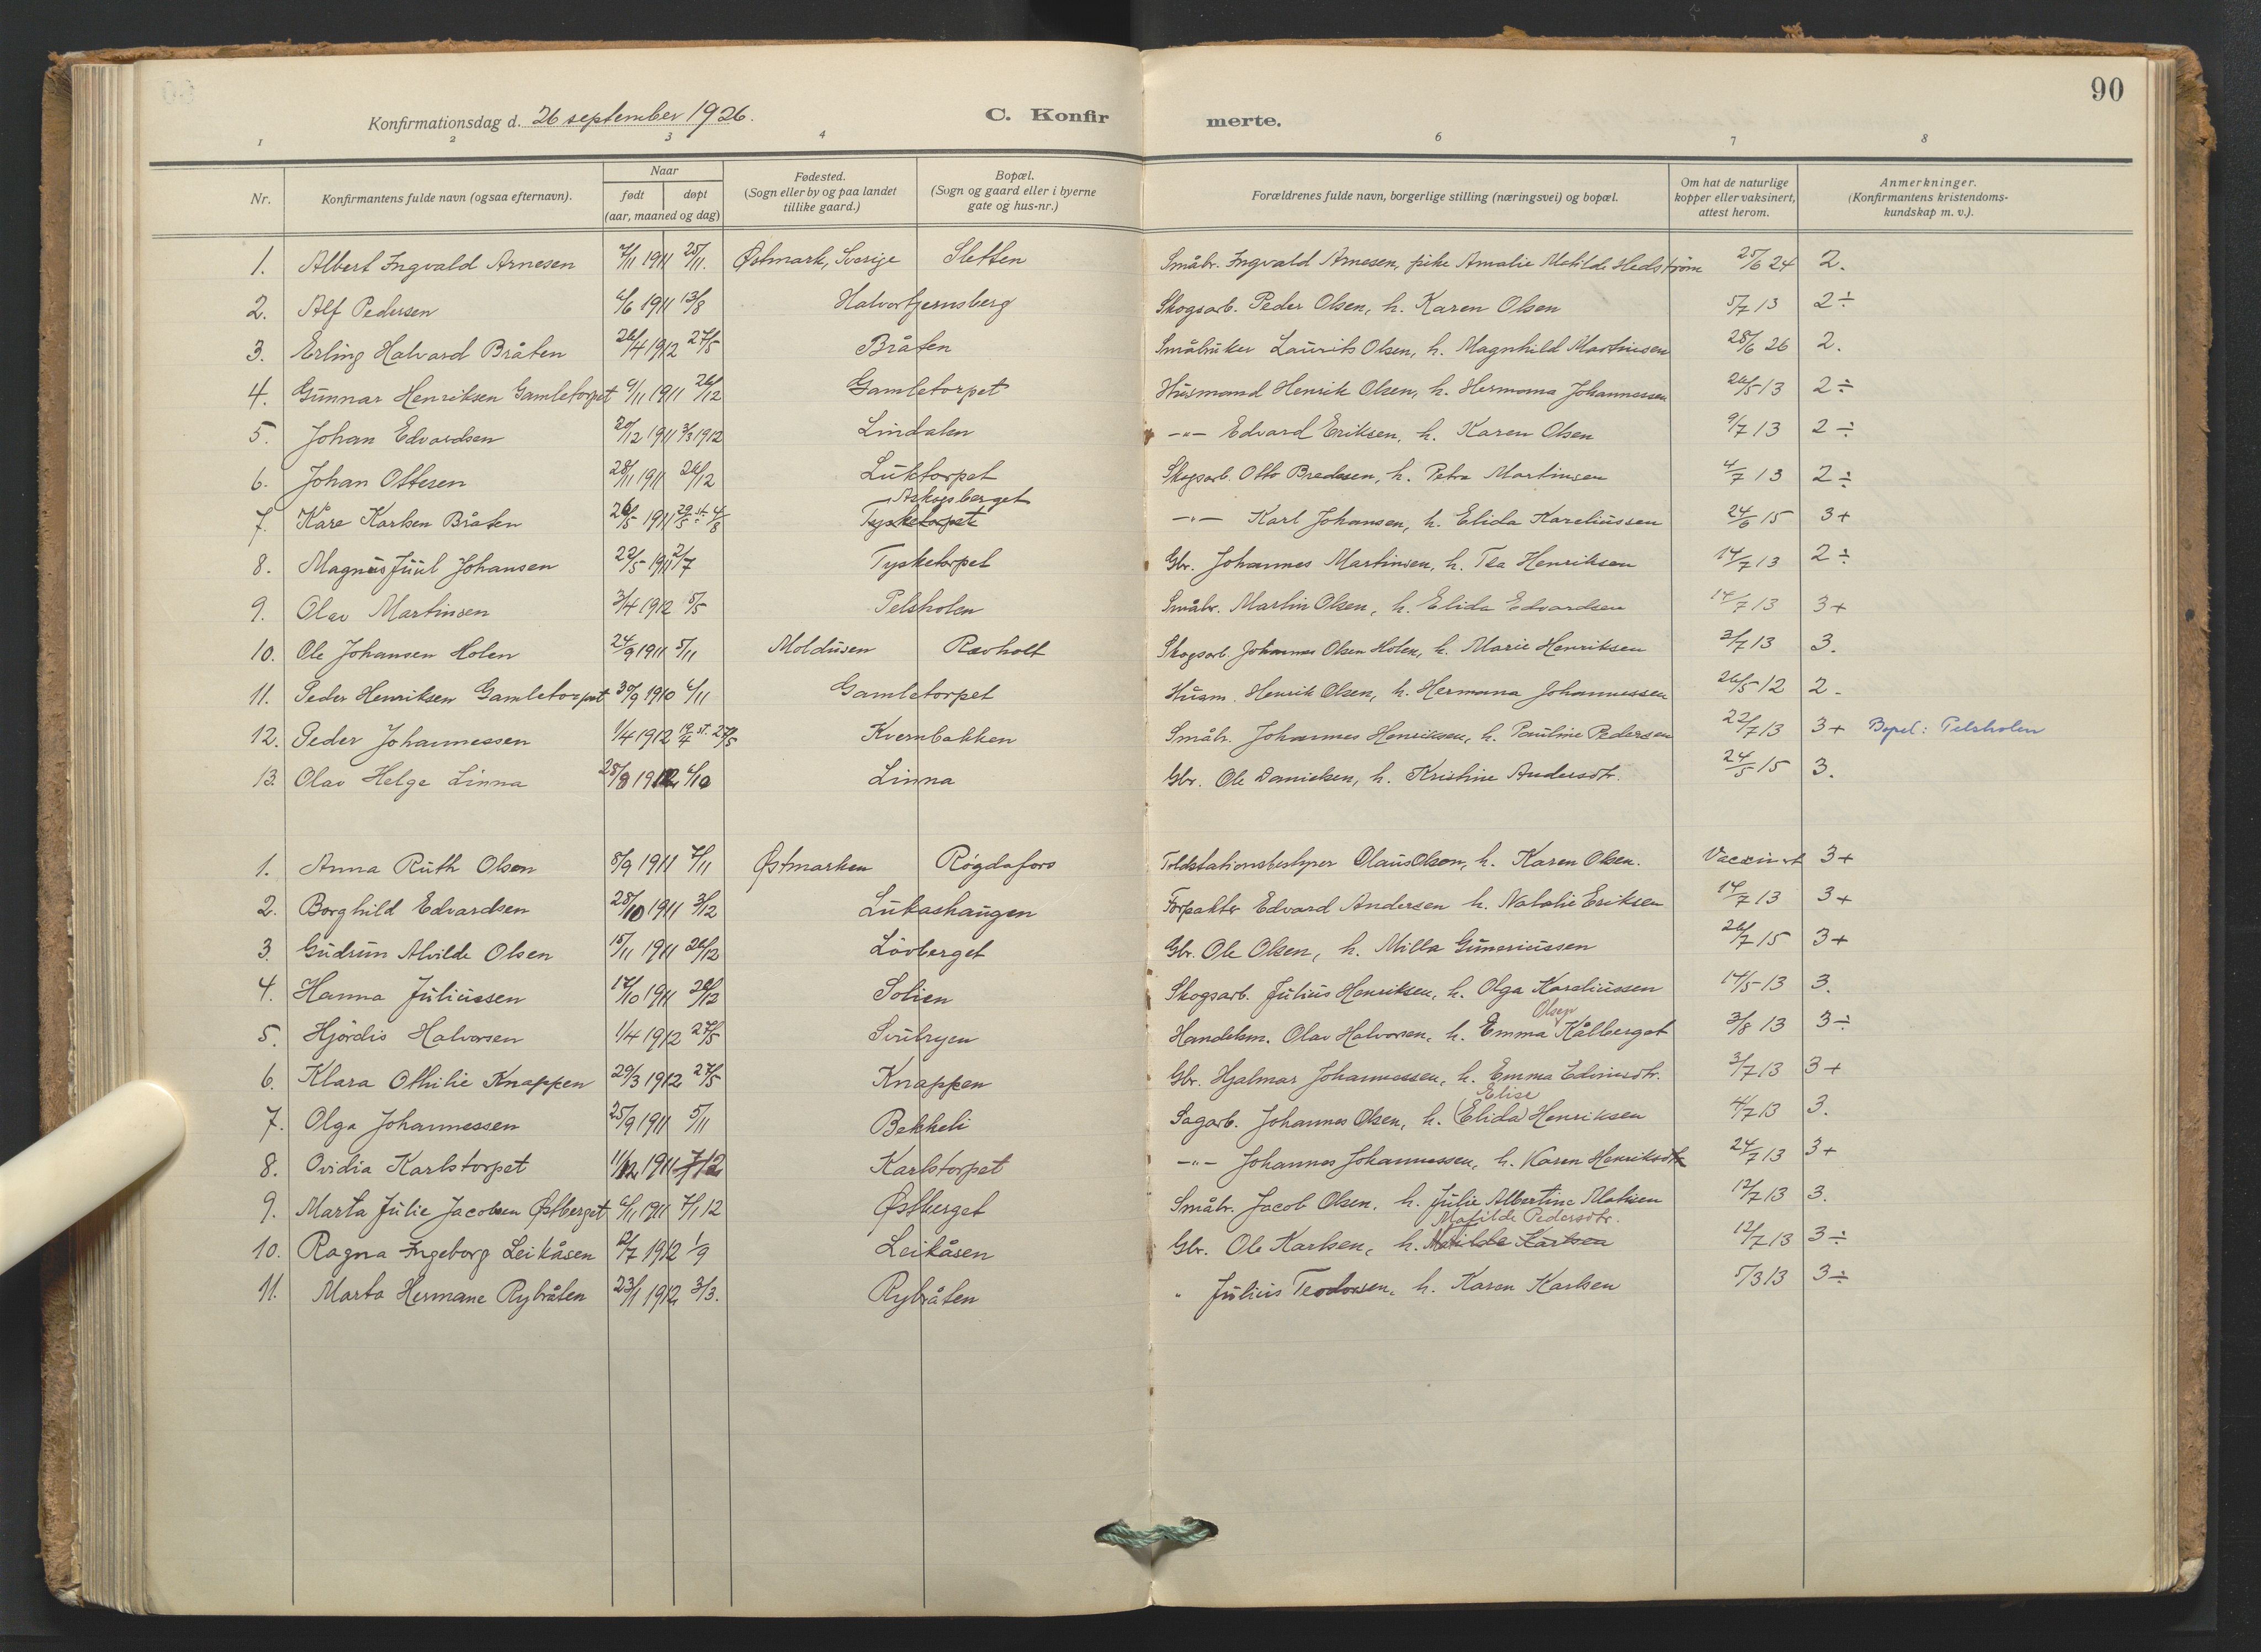 90
Konfirmationsdag d. 26 september 1926.
C. Konfirmerte.
1 2 3 4 6 7 8
Nr. Konfirmantens fulde navn (ogsaa efternavn). Naar født døpt (aar, maaned og dag) Fødested. (Sogn eller by og paa landet tillike gaard.) Bopæl. (Sogn og gaard eller i byerne gate og hus-nr.) Forældrenes fulde navn, borgerlige stilling (næringsvei) og bopæl. Om hat de naturlige kopper eller vaksinert, attest herom. Anmerkninger. (Konfirmantens kristendoms-kundskap m. v.).
1. Albert Ingvald Arnesen 7/11 1911 25/11. Østmark, Sverige Sletten Småbr. Ingvald Arnesen, pike Amalie Matilde Hedstrøm 25/6 24 2.
2. Alf Pedersen 6/6 1911 13/8 Halvortjernsberg Skogsarb. Peder Olsen, h. Karen Olsen 5/7 13 2÷
3. Erling Halvard Bråten 26/4 1912 27/5 Bråten Småbruker Laurits Olsen, h. Magnhild Martinsen 28/6 26 2.
4. Gunnar Henriksen Gamletorpet 9/11 1911 26/12 Gamletorpet Husmand Henrik Olsen, h. Hermana Johannessen 26/5 13 2÷
5. Johan Edvardsen 20/12 1911 3/3 1912 Lindalen -"- Edvard Eriksen, h. Karen Olsen 9/7 13 2÷
6. Johan Ottesen 28/11 1911 26/12 Luktorpet Skogsarb. Otto Bredesen, h. Petra Martinsen 4/7 13 2÷
Askogsberget
7. Kåre Karlsen Bråten 26/5 1911 29/5 st. 4/8 Tysketorpet -"- Karl Johansen, h. Elida Kareliussen 24/6 15 3+
8. Magnus Juul Johansen 22/5 1911 2/7 Tysketorpet Gbr. Johannes Martinsen, h. Tea Henriksen 14/7 13 2÷
9. Olav Martinsen 3/4 1912 5/5 Pelsholen Småbr. Martin Olsen, h. Elida Edvardsen 14/7 13 3+
10. Ole Johansen Holen 24/9 1911 5/11 Moldusen Ravholt Skogsarb. Johannes Olsen Holen, h. Marie Henriksen 2/7 13 3.
11. Peder Henriksen Gamletorpet 30/9 1910 6/11 Gamletorpet Husm. Henrik Olsen, h. Hermana Johannessen 26/5 12 2.
12. Peder Johannessen 1/4 1912 19/4 st. 27/5 Kvernbakken Småbr. Johannes Henriksen, h. Pauline Pedersen 22/7 13 3+ Bopel: Pelsholen
13. Olav Helge Linna 28/8 1912 6/10 Linna Gbr. Ole Danielsen, h. Kristine Andersdtr. 24/5 15 3.
1. Anna Ruth Olsen 8/9 1911 7/11 Østmarken Røgdafors Toldstationsbestyrer Olaus Olsen, h. Karen Olsen. Vaccinert 3+
2. Borghild Edvardsen 28/10 1911 3/12 Lukashaugen Forpakter Edvard Andersen h. Natalie Eriksen 14/7 13 3+
3. Gudrun Alvilde Olsen 15/11 1911 26/12 Lövberget Gbr. Ole Olsen, h. Milla Guneriussen 26/7 15 3+
4. Hanna Juliussen 17/10 1911 26/12 Solien Skogsarb. Julius Henriksen, h. Olga Kareliussen 14/5-13 3.
Olsen
5. Hjördis Halvorsen 1/4 1912 27/5 Svulryen Handelsm. Olav Halvorsen, h. Emma Kålberget 3/8 13 3÷
6. Klara Othilie Knappen 29/3 1912 27/5 Knappen Gbr. Hjalmar Johannessen, h. Emma Edinsdtr. 3/7 13 3+
Elise
7. Olga Johannessen 25/9 1911 5/11 Bekkeli Sagarb. Johannes Olsen, h. (Elida) Henriksen 4/7 13 3.
8. Ovidia Karlstorpet 11/12 1911 Karlstorpet -"- Johannes Johannessen, h. Karen Henriksdtr 24/7 13 3+
9. Marta Julie Jacobsen Østberget 6/11 1911 7/1 12 Østberget Småbr. Jacob Olsen, h. Julie Albertine Matisen 12/7 13 3.
Matilde Pedersdtr.
10. Ragna Ingeborg Leikåsen 12/7 1912 1/9 Leikåsen Gbr. Ole Karlsen, h. Matilde Karlsen 12/7 13 3÷
11. Marta Hermane Rybråten 23/1 1912 3/3. Rybråten " Julius Teodorsen, h. Karen Karlsen 5/3 13 3÷